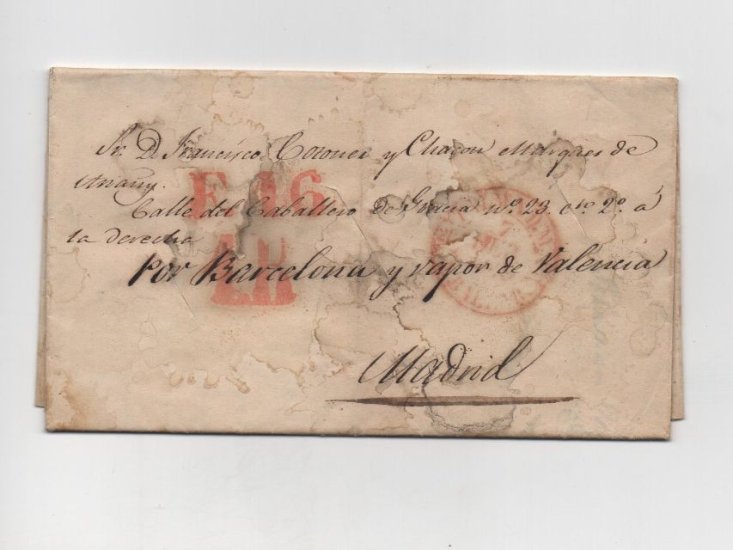 Sr. D. Francisco Cotoner y Chacon Marques de
Ariany.
F. 16
Calle del Caballero de Gracia nº. 23. cto 2º. á
la derecha
Por Barcelona y vapor de Valencia
Madrid